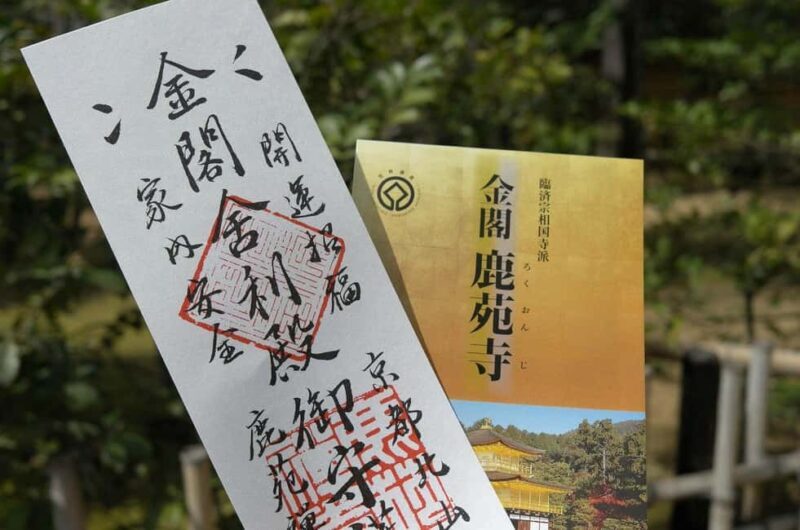 開運招福
金閣舎利殿御守
家内安全
京都北山
鹿苑
臨済宗相国寺派
金閣 鹿苑寺
ろくおんじ